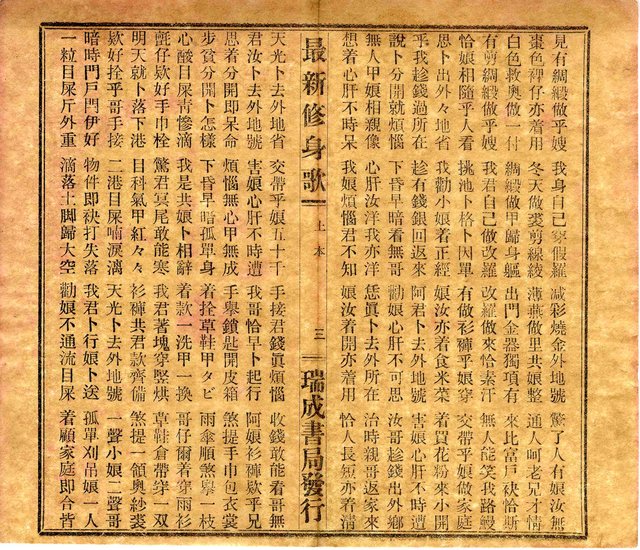 見有綢緞做乎嫂 我身自己穿假羅 减彩燒金外地號 驚了人有娘汝無
棗色裡仔亦着用 冬天做裘剪線綾 薄燕做里共娘整 通人呵老兄才情
白色救奧做一付 綢緞做甲歸身軀 出門金器獨項有 來比富戶袂恰斯
有剪綢緞做乎嫂 我君自己做改羅 改羅做來恰泰汗 無人能笑我路鰻
恰娘相隨乎人看 挑池卜格卜因單 有做衫褲乎娘穿 交帶乎娘做家庭
恩卜出外々地省 我勸小娘着正經 娘汝亦着食米菜 着買花粉來小開
乎我趁錢過所在 趁有錢銀回返來 阿君卜去外地號 害娘心肝不時遭
說卜分開就煩惱 下昏早暗看無哥 勸娘心肝不可思 汝哥趁錢出外鄉
無人甲娘相親像 心肝汝洋我亦洋 恁眞卜去外所在 治時親哥返家來
想着心肝不時呆 我娘煩惱君不知 娘汝着開亦着用 恰人長短亦着清
最新修身歌 上本 三 瑞成書局發行
天光卜去外地省 交帶乎娘五十千 手接君錢眞煩惱 收錢敢能看哥無
君汝卜去外地號 害娘心肝不時遭 我哥恰早卜起行 阿娘衫褲欵乎兄
思着分開即呆命 煩惱無心甲無成 手舉鎖匙開皮箱 煞提手巾包衣裳
步貧分開卜怎樣 下昏早暗孤單身 着拴草鞋甲タビ 雨傘順煞舉一枝
心酸目屎青慘滴 我是共娘卜相辭 着款一洗甲一換 哥仔爾着穿雨衫
毡仔欵好手巾栓 驚君冥尾敢能寒 我君著塊穿竪烘 草鞋倉帶穿一双
明天就卜落下港 目科氣甲紅々々 衫褲共君款齊備 煞提一領奧紗裘
欵好拴乎哥手接 二港目屎喃淚漓 天光卜去外地號 一聲小娘二聲哥
暗時門戶門伊好 物件即袂打失落 我君卜行娘卜送 孤單刈吊娘一人
一粒目屎斤外重 滴落土脚歸大空 勸娘不通流目屎 着顧家庭即合皆